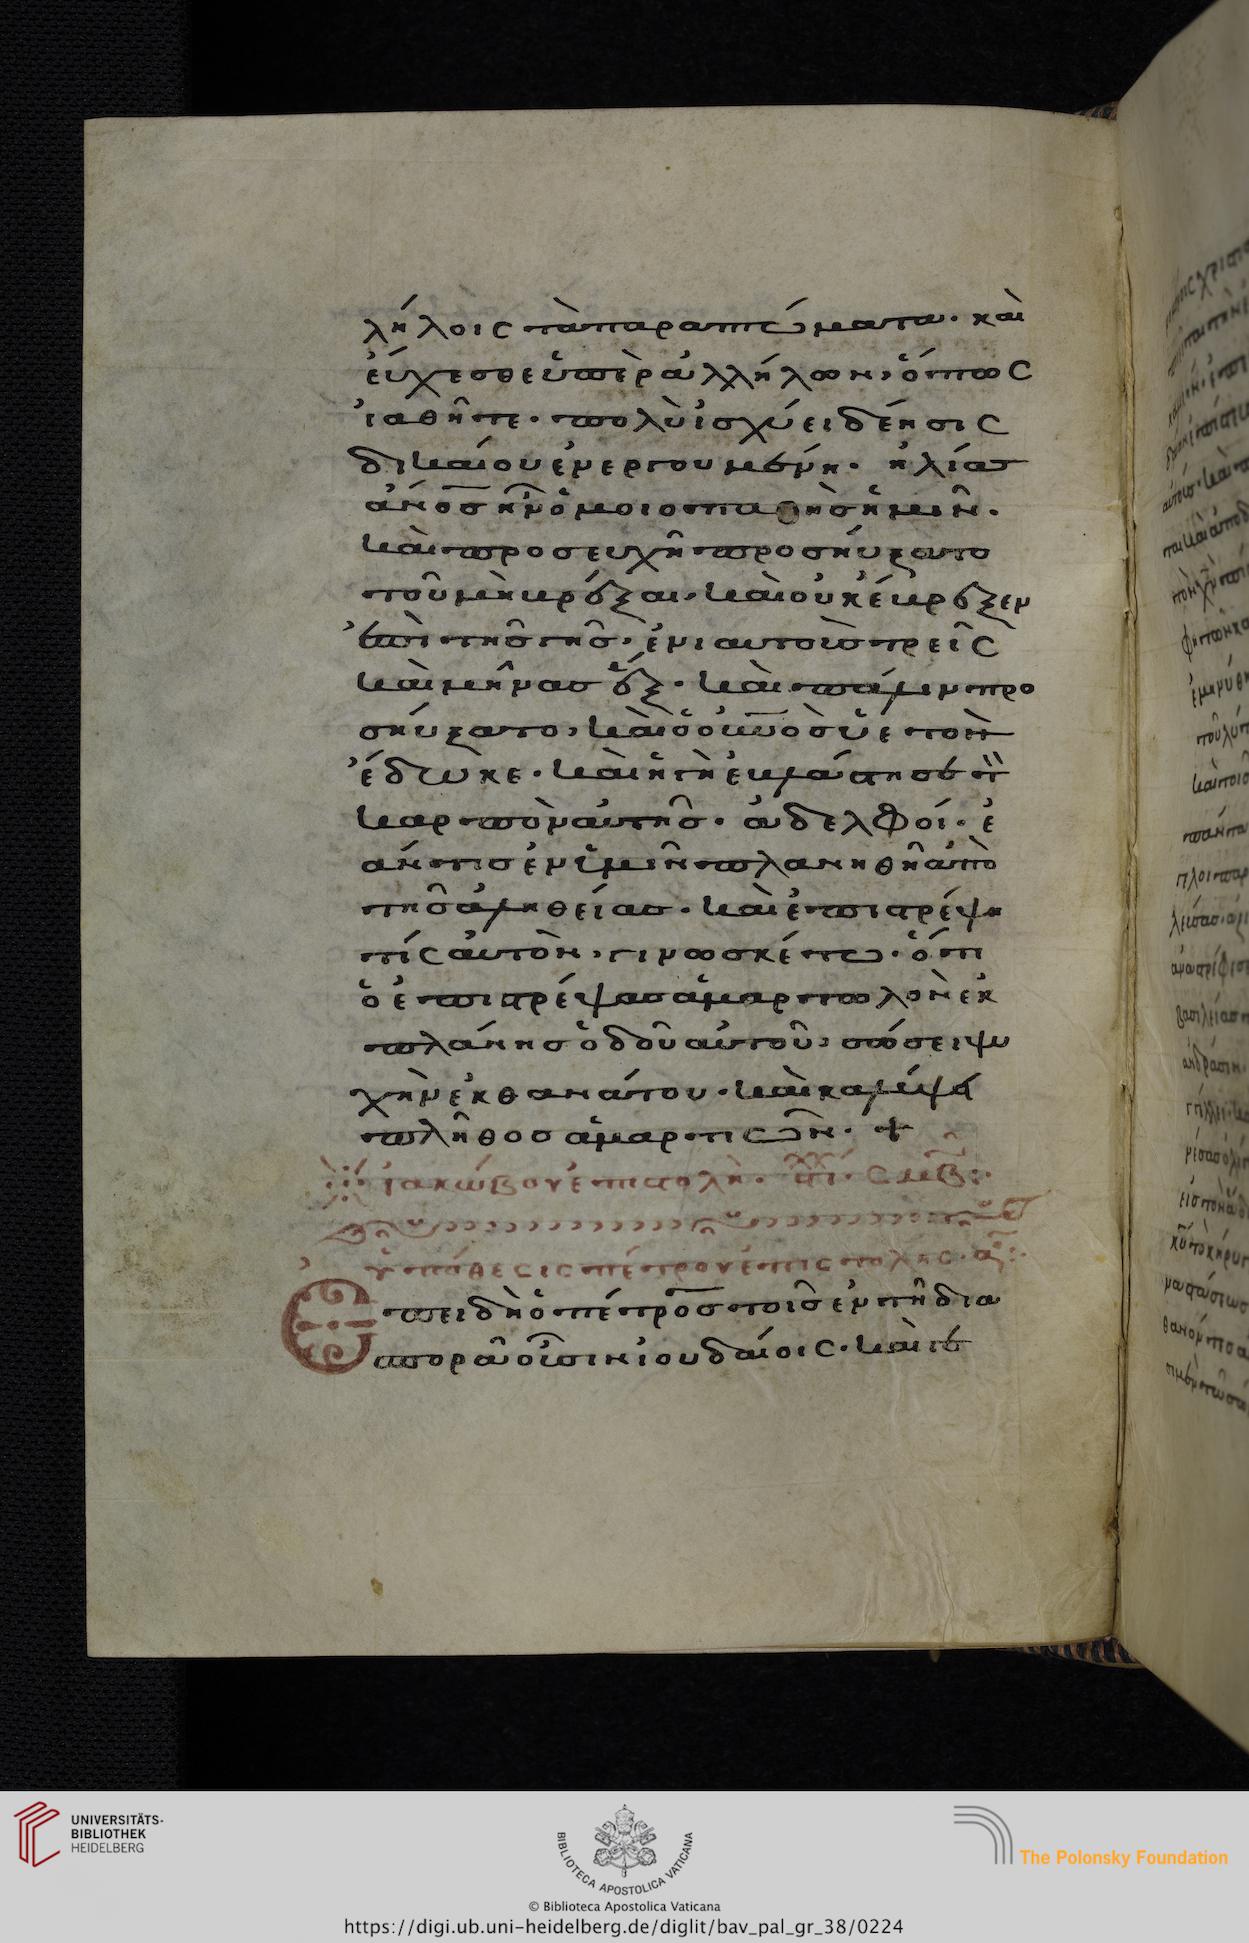 λήλοις τὰ παραπτώματα· καὶ
εὔχεσθε ὑπὲρ ἀλλήλων, ὅπως
ἰαθῆτε· πολὺ ἰσχύει δέησις
δικαίου ἐνεργουμένη· ἠλίας
ἄν̅ο̅ς̅ ἦν ὁμοιοπαθὴς ἡμῖν·
καὶ προσευχῆ προσηύξατο
τοῦ μὴ βρέξαι· καὶ οὐκ ἔβρεξεν
ἐπὶ τῆς γῆς· ἐνιαυτοὺς τρεῖς
καὶ μῆνας ἕξ· καὶ πάλιν προ
σηύξατο, καὶ ὁ ο̅υ̅ν̅ο̅ς̅ ὑετὸν
ἔδωκε· καὶ ἡ γῆ ἐβλάστησε τὸν
καρπὸν αὐτῆς· ἀδελφοί· ἐ
άν τις ἐν ὑμῖν πλανηθῆ ἀπὸ
τῆς ἀληθείας· καὶ ἐπιστρέψη
τίς αὐτὸν, γινωσκέτω· ὅτι
ὁ ἐπιστρέψας ἁμαρτωλὸν ἐκ
πλάνης ὁδοῦ αὐτοῦ, σώσει ψυ
χὴν ἐκ θανάτου· καὶ καλύψει
πλῆθος ἁμαρτιῶν· +
ἰακώβου ἐπιστολὴ· στί· σμβ:·
ὑπόθεσις πέτρου ἐπιστολῆς· α:·
Ἐπειδὴ ὁ πέτρος τοῖς ἐν τῆ δια
σπορᾶ οὖσιν ἰουδαίοις· καὶ γε
UNIVERSITÄTS-
BIBLIOTHEK
HEIDELBERG
BIBLIOTECA APOSTOLICA VATICANA
The Polonsky Foundation
© Biblioteca Apostolica Vaticana
https://digi.ub.uni-heidelberg.de/diglit/bav_pal_gr_38/0224